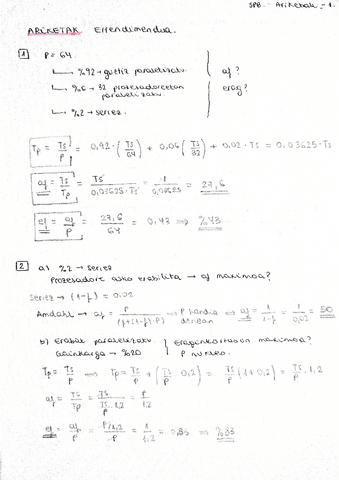 SPB. - Ariketak - 1.
ARIKETAK Errendimendua.
1 P = 64
↳ %92 → guztiz paralelizatu. af?
↳ %6 → 32 prozesadoreetan paralelizatu. erag?
↳ %2 → seriez
Tp = Ts/P = 0,92 · (Ts/64) + 0,06 (Ts/32) + 0,02 · Ts = 0,03625 · Ts
af = Ts/Tp = Ts/(0,03625 · Ts) = 1/0,03625 = 27,6
ef = af/P = 27,6/64 = 0,43 ⇒ %43
2 a) %2 → seriez
Prozesadore asko erabilita → af maximoa?
Seriez → (1-f) = 0.02
Amdahl → af = P/(f+(1-f)·P) → P handia denean ⇒ af = 1/(1-f) = 1/0,02 = 50
b) Erabat paralelizatu. Eraginkortasun maximoa?
Gainkarga → %20 P nukleo.
Tp = Ts/P ⇒ Tp = Ts/P + (Ts/P · 0,2) = Ts/P (1+0,2) = Ts/P · 1,2
af = Ts/Tp = Ts/(Ts/P · 1,2) = P/1,2
ef = af/P = (P/1,2)/P = 1/1,2 = 0,83 ⇒ %83